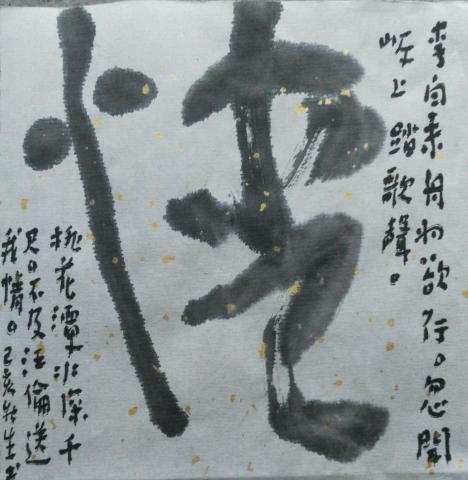 李白乘舟将欲行。忽聞
岸上踏歌聲。
桃花潭水深千
尺。不及汪倫送
我情。己亥